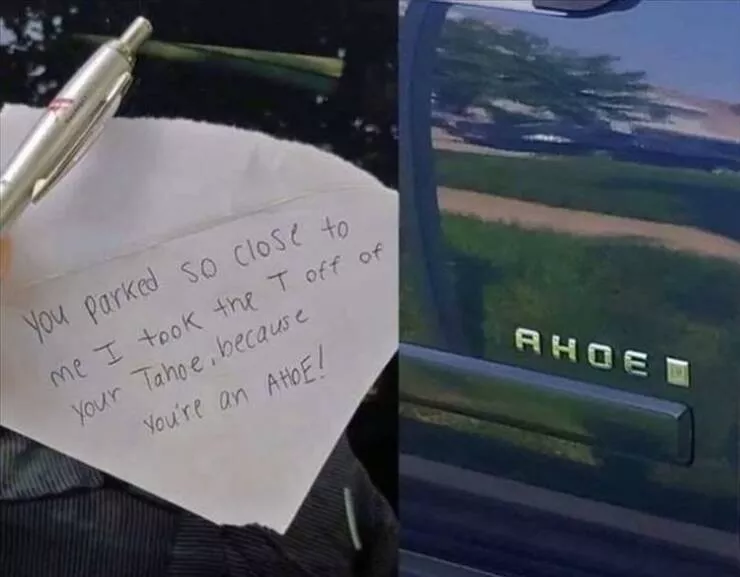 You parked so close to
me I took the T off of
your Tahoe, because
you're an AHOE!
AHOE